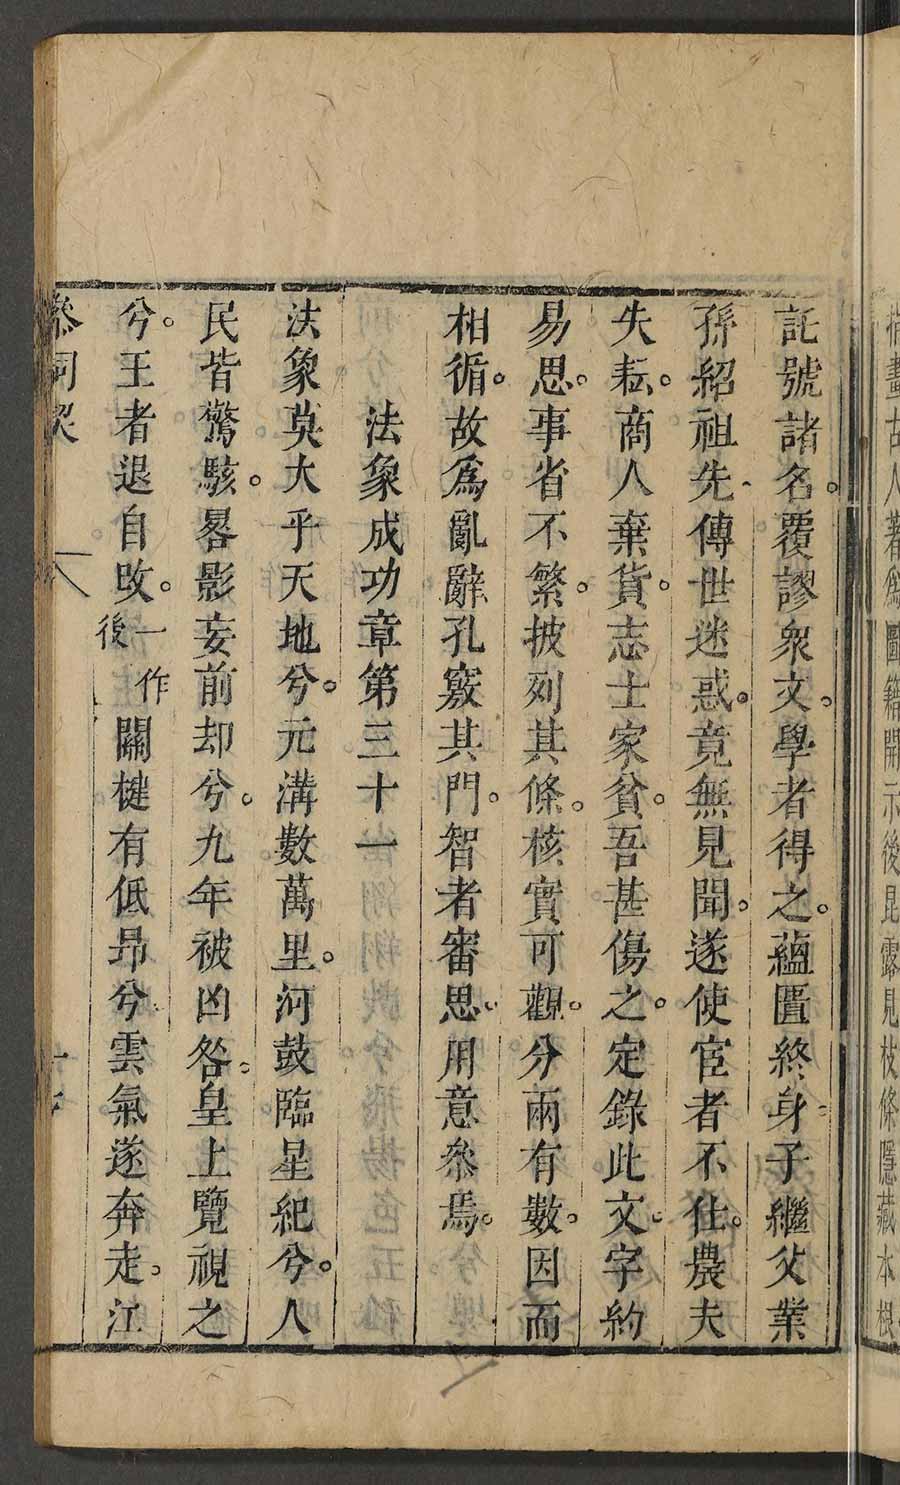 描畫古人著爲圖籍開示後昆露見枝條隱藏本根
託號諸名。覆謬衆文。學者得之。韞匱終身。子繼父業
孫紹祖先。傳世迷惑。竟無見聞。遂使宦者不仕。農夫
失耘。商人棄貨。志士家貧。吾甚傷之。定錄此文。字約
易思。事省不繁。披列其條。核實可觀。分兩有數。因而
相循。故爲亂辭孔竅其門。智者審思。用意叅焉。
法象成功章第三十一
法象莫大乎天地兮。元溝數萬里。河鼓臨星紀兮。人
民皆驚駭。晷影妄前却兮。九年被凶咎。皇上覽視之
兮。王者退自改。一作後關楗有低昂兮雲氣遂奔走。江
叅同契